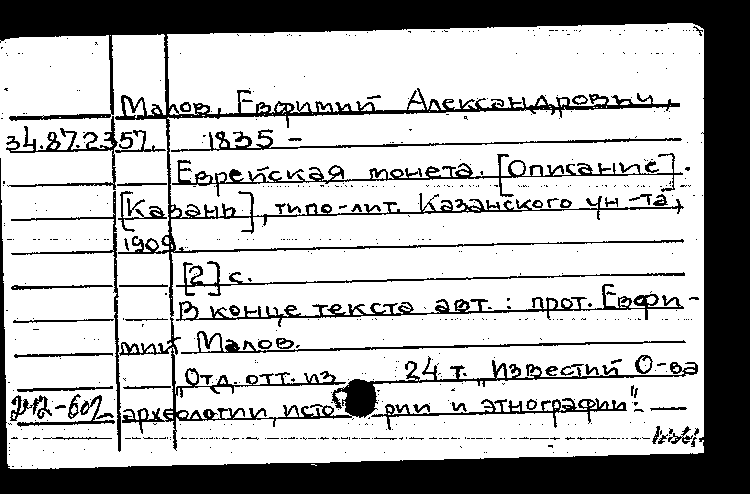 Малов, Евфимий Александрович,
34.87.2357. 1835 –
Еврейская монета. [Описание].
[Казань], типо-лит. Казанского ун-та,
1909.
[2] с.
В конце текста авт.: прот. Евфи-
мий Малов.
"Отд. отт. из 24 т. "Известий О-ва
212-602 археологии, истории и этнографии".